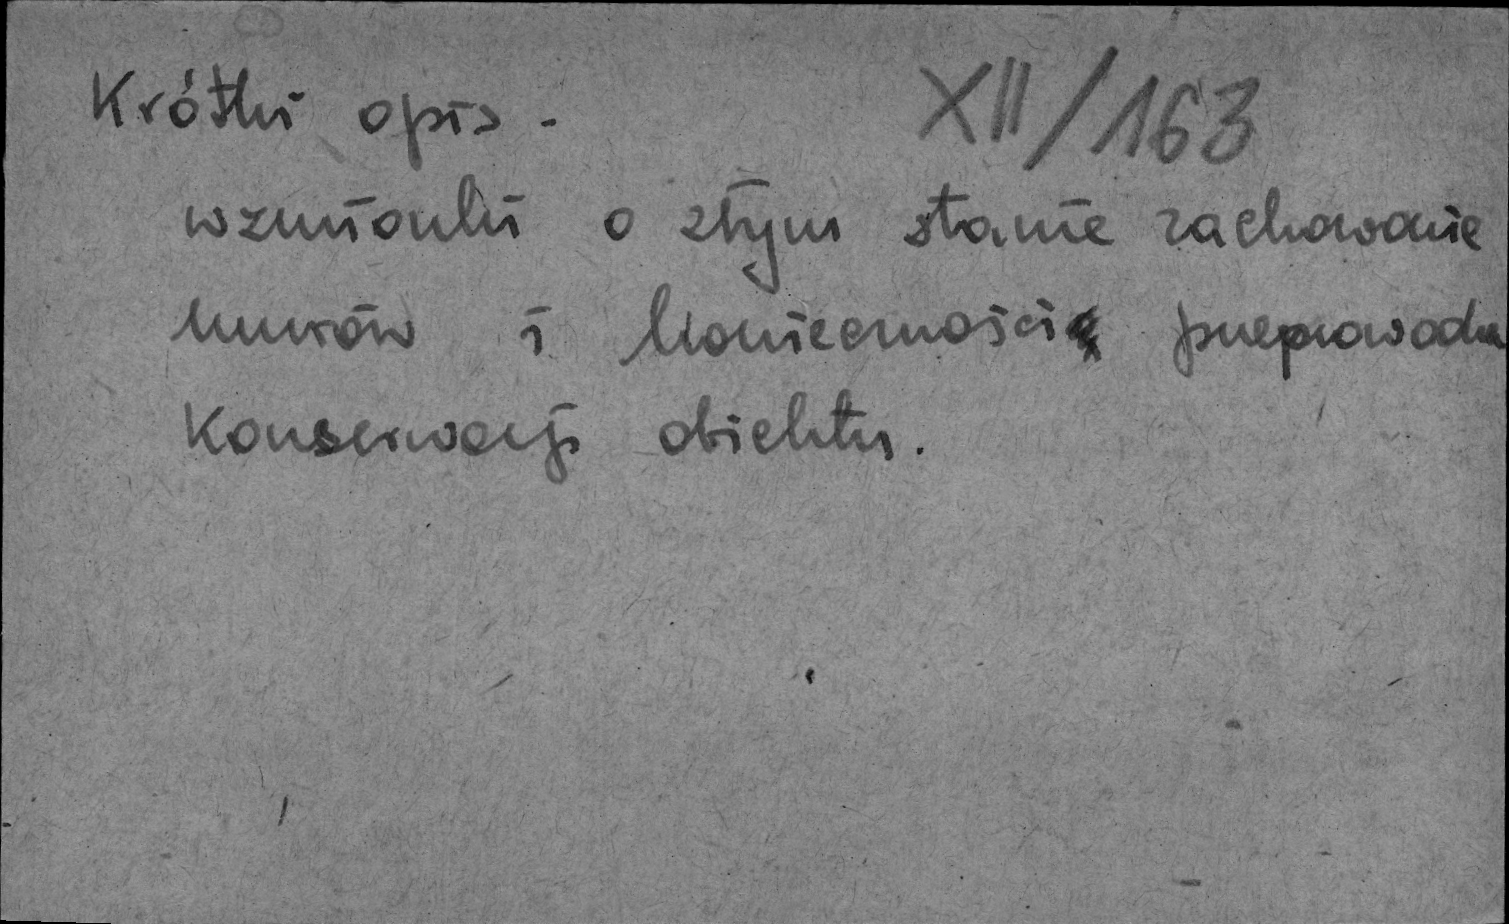 Krótki opis - XII/163
wzmianki o złym stanie zachowanie
murów i konieczności przeprowadze
Konserwacji obiektu.